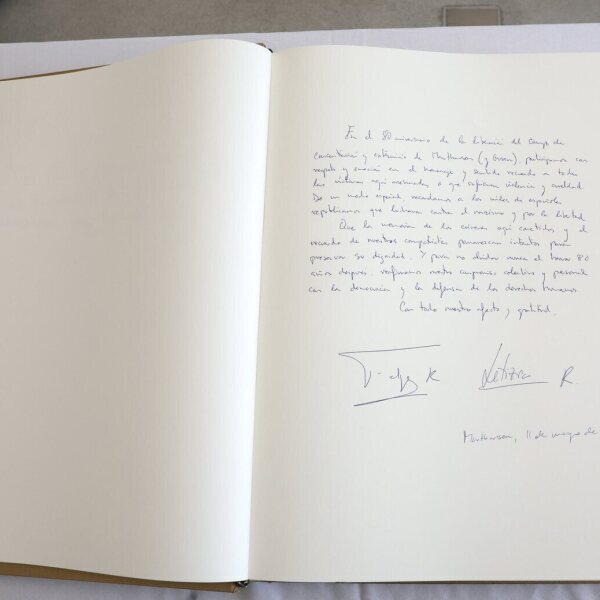 En el 80 aniversario de la liberación del campo de
concentración y exterminio de Mauthausen (y Gusen), participamos con
respeto y emoción en el homenaje y sentido recuerdo a todas
las víctimas aquí asesinadas o que sufrieron violencia y crueldad.
De un modo especial, recordamos a los miles de españoles
republicanos que lucharon contra el nazismo y por la libertad.
Que la memoria de los crímenes aquí cometidos y el
recuerdo de nuestros compatriotas permanezcan intactos para
preservar su dignidad. Y para no olvidar nunca el horror 80
años después, reafirmamos nuestro compromiso colectivo y personal
con la democracia y la defensa de los derechos humanos.
Con todo nuestro afecto y gratitud.
Felipe R Letizia R.
Mauthausen, 11 de mayo de